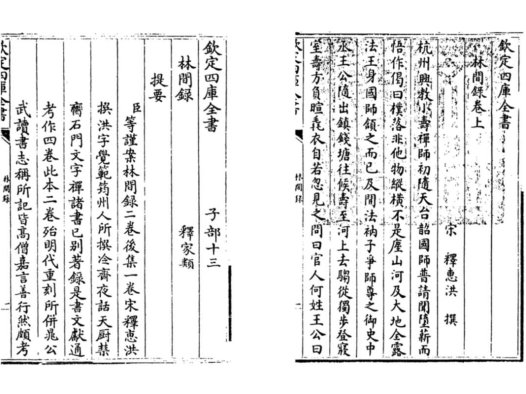 欽定四庫全書 子部十三
林間錄 釋家類
提要
臣等謹案林間錄二卷後集一卷宋釋惠洪
撰洪字覺範筠州人所撰冷齋夜話天厨禁
臠石門文字禪諸書已别著錄是書文獻通
考作四卷此本二卷殆明代重刻所併晁公
武讀書志稱所記皆高僧嘉言善行然頗考
欽定四庫全書 林間錄
欽定四庫全書
林間錄卷上
宋 釋惠洪 撰
杭州興教小壽禪師初隨天台韶國師普請聞墮薪而
悟作偈曰樸落非他物縱橫不是塵山河及大地全露
法王身國師頷之而已及開法衲子爭師尊之御史中
丞王公隨出鎮錢塘往候壽至河上去騶從獨步登寢
室壽方負暄毳衣自若忽見之問曰官人何姓王公曰
欽定四庫全書 林間錄